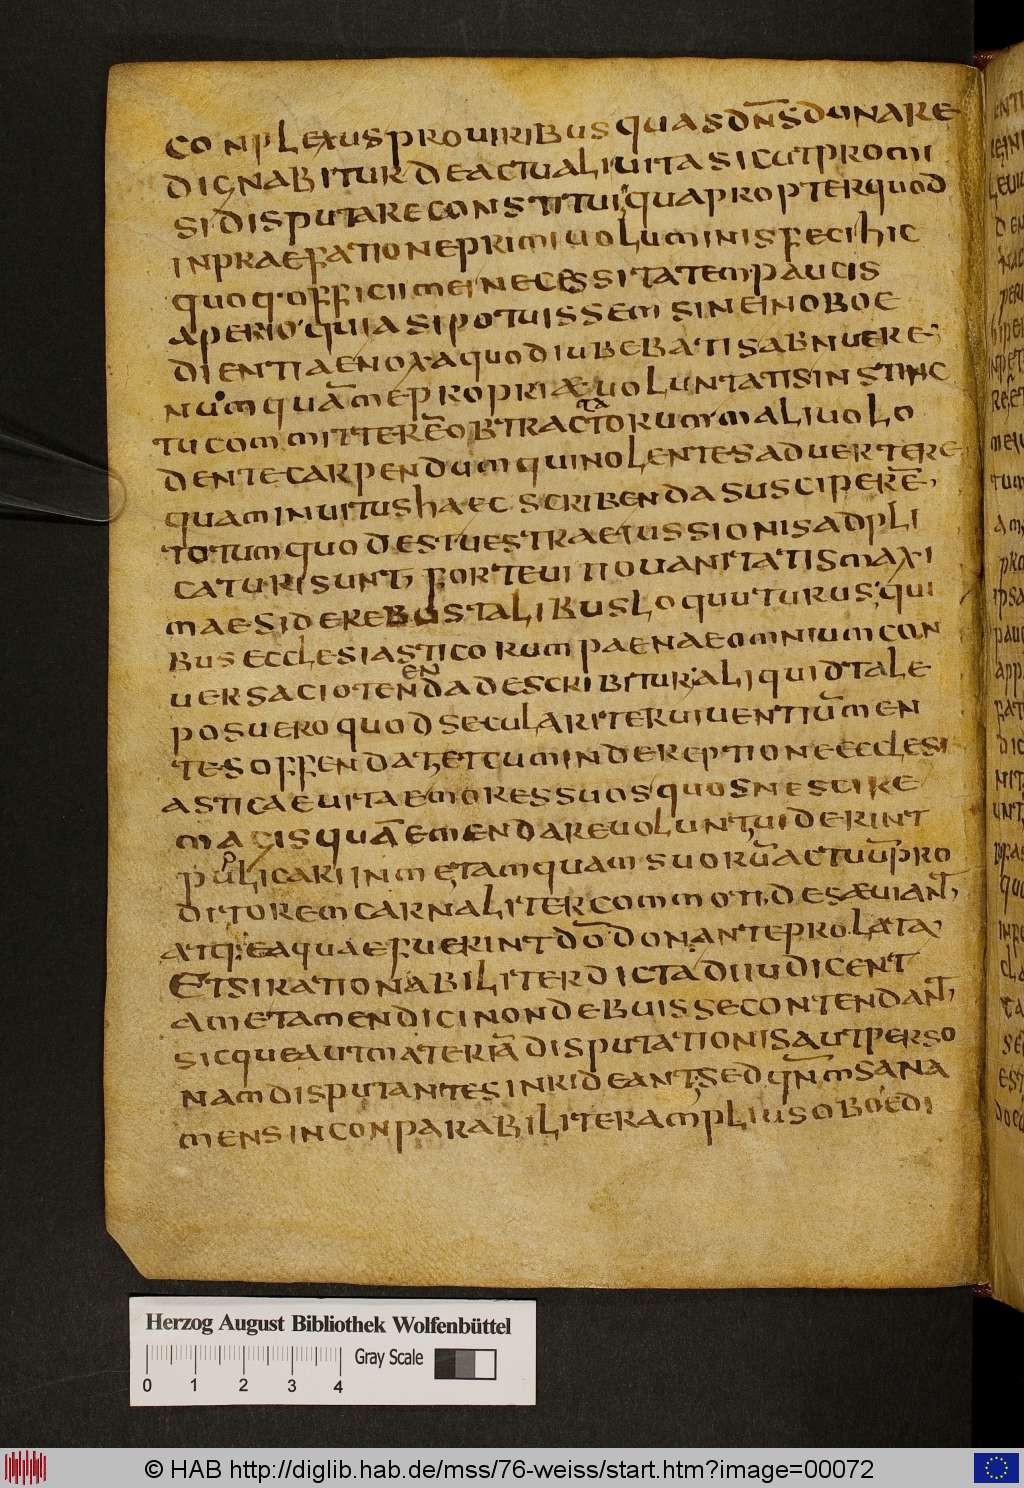 CONPLEXUS PRO UIRIBUS QUAS DN̄S DONARE
DIGNABITUR DE ACTUALI UITA SICUT PROMI
SI DISPUTARE CONSTITUI QUAPROPTER QUOD
IN PRAEFATIONE PRIMI UOLUMINIS FECI HIC
QUOQ· OFFICII MEI NECESSITATEM PAUCIS
APERIO· QUIA SI POTUISSEM SINE INOBOE
DIENTIAE NOXA QUOD IUBEBATIS ABNUERE
NUMQUĀ ME PROPRIAE UOLUNTATIS INSTINC
TU COMMITTERĒ OBTRACTATORUM MALIUOLO
DENTE CARPENDUM QUI NOLENTES ADUERTERE
QUAM INUITUS HAEC SCRIBENDA SUSCIPERĒ
TOTUM QUOD EST UESTRAE IUSSIONIS ADPLI
CATURI SUNT, FORTE UITIO UANITATIS MAXI
MAE SI DE REBUS TALIBUS LOQUUTURUS, QUI
BUS ECCLESIASTICORUM PAENAE OMNIUM CON
UERSACIO TENENDA DESCRIBITUR· ALIQUID TALE
POSUERO QUOD SECULARITER UIUENTIŪ MEN
TES OFFENDAT, ET CUM INDEREPTIONE ECCLESI
ASTICAE UITAE MORES SUOS QUOS NESCIRE
MAGIS QUĀ EMENDARE UOLUNT, UIDERINT
PUPLICARI IN ME TAMQUAM SUORŪ ACTUŪ PRO
DITOREM CARNALITER COMMOTI, DESAEUIANT,
ATQ· EA QUAE FUERINT DŌ DONANTE PROLATA
ET SI RATIONABILITER DICTA DIIUDICENT
A ME TAMEN DICI NON DEBUISSE CONTENDANT,
SICQUE AUT MATERIĀ DISPUTATIONIS AUT PERSO
NAM DISPUTANTES INRIDEANT, SED QN̄M SANA
MENS INCONPARABILITER AMPLIUS OBOEDI
Herzog August Bibliothek Wolfenbüttel
Gray Scale
0 1 2 3 4
© HAB http://diglib.hab.de/mss/76-weiss/start.htm?image=00072